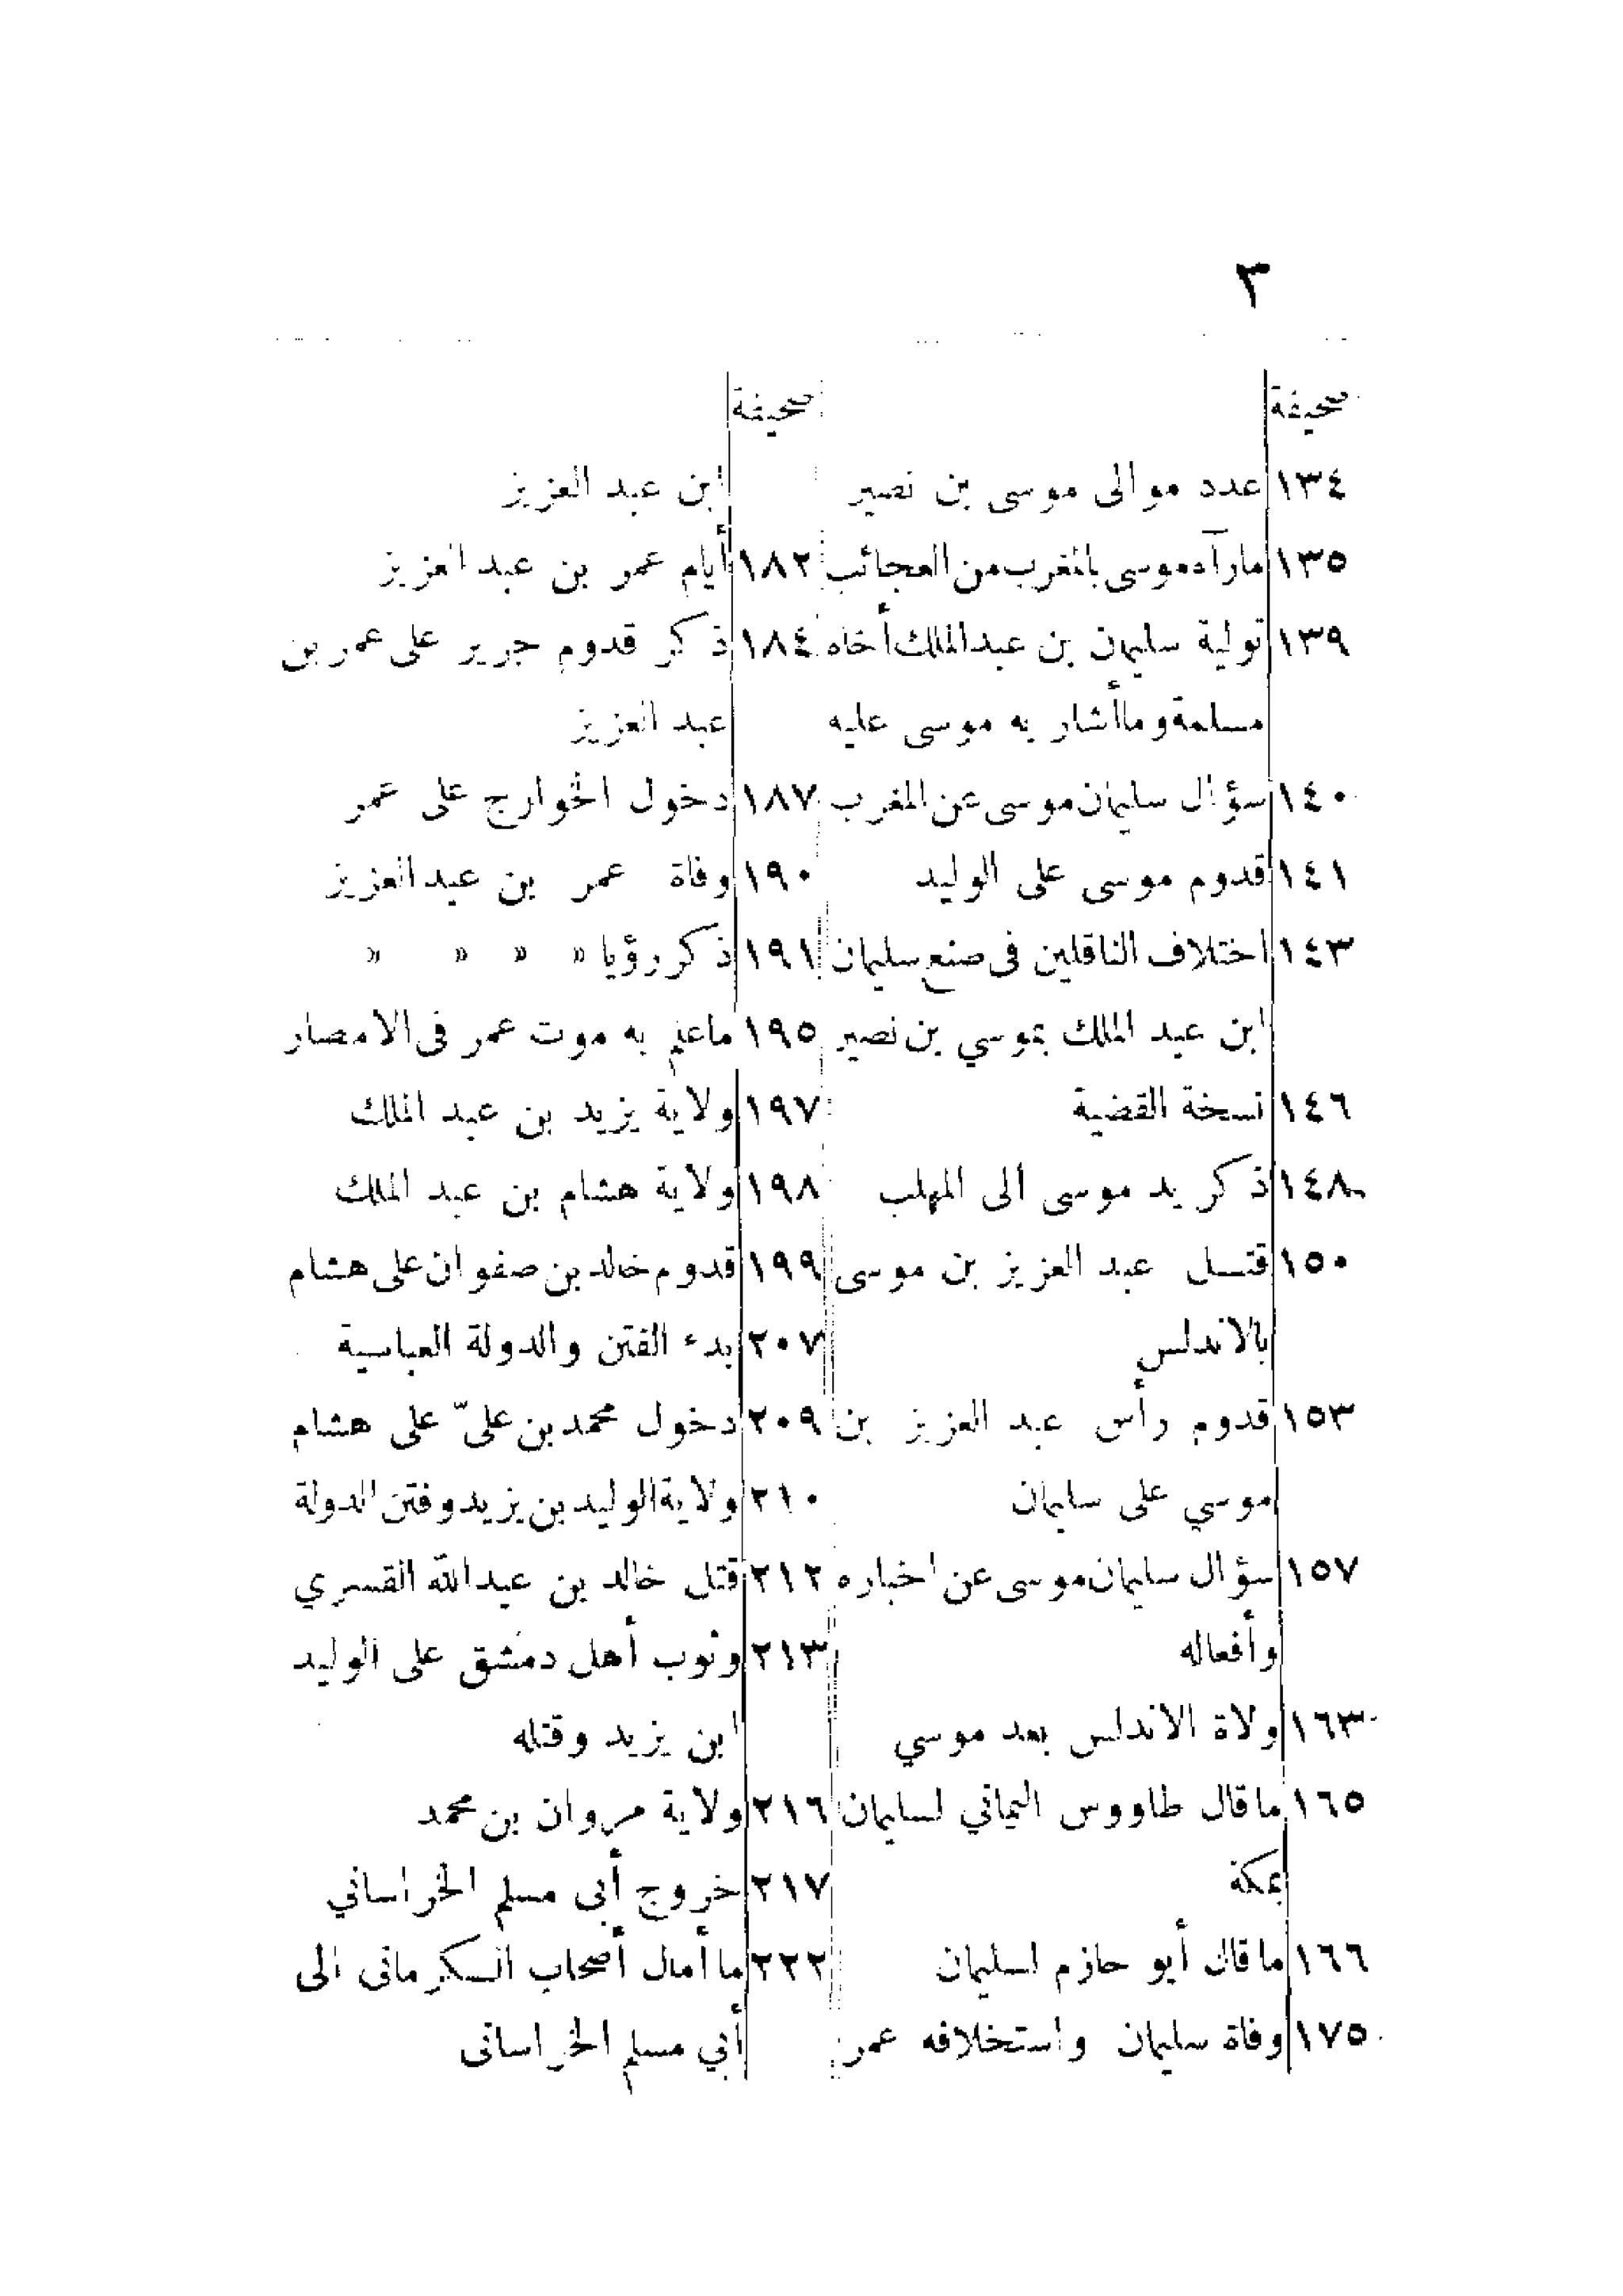 ٣
صحيفة
١٣٤ عدد موالى موسى بن نصير
١٣٥ مارآه موسى بالمغرب من العجائب
١٣٩ تولية سليمان بن عبد الملك أخاه
مسلمة وما أشار به موسى عليه
١٤٠ سؤال سليمان موسى عن المغرب
١٤١ قدوم موسى على الوليد
١٤٣ اختلاف الناقلين فى صنع سليمان
ابن عبد الملك بموسي بن نصير
١٤٦ نسخة القضية
١٤٨ ذكر يد موسى الى المهلب
١٥٠ قتل عبد العزيز بن موسى
بالاندلس
١٥٣ قدوم رأس عبد العزيز بن
موسي على سليمان
١٥٧ سؤال سليمان موسى عن اخباره
وأفعاله
١٦٣ ولاة الاندلس بعد موسي
١٦٥ ماقال طاووس اليماني لسليمان
بمكة
١٦٦ ماقال أبو حازم لسليمان
١٧٥ وفاة سليمان واستخلافه عمر
صحيفة
ابن عبد العزيز
١٨٢ أيام عمر بن عبد العزيز
١٨٤ ذكر قدوم جرير على عمر بن
عبد العزيز
١٨٧ دخول الخوارج على عمر
١٩٠ وفاة عمر بن عبد العزيز
١٩١ ذكر رؤيا » » » »
١٩٥ ماعلم به موت عمر فى الامصار
١٩٧ ولاية يزيد بن عبد الملك
١٩٨ ولاية هشام بن عبد الملك
١٩٩ قدوم خالد بن صفوان على هشام
٢٠٧ بدء الفتن والدولة العباسية
٢٠٩ دخول محمد بن علىّ على هشام
٢١٠ ولاية الوليد بن يزيد وفتن الدولة
٢١٢ قتل خالد بن عبد الله القسري
٢١٣ وثوب أهل دمشق على الوليد
ابن يزيد وقتله
٢١٦ ولاية مروان بن محمد
٢١٧ خروج أبى مسلم الخراساني
٢٢٢ ما أمال أصحاب الكرمانى الى
أبي مسلم الخراسانى